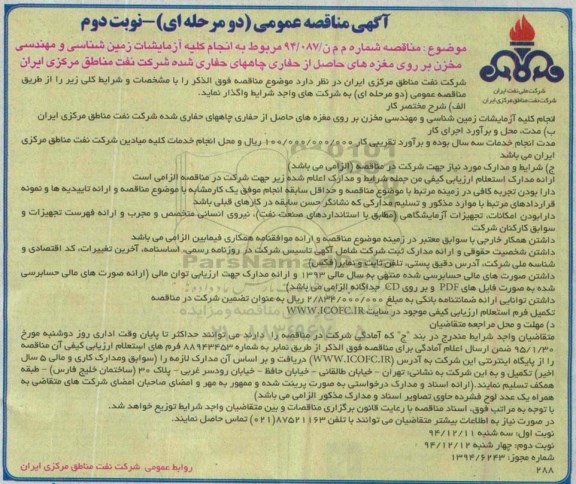 آگهی مناقصه عمومی (دو مرحله ای)-نوبت دوم
موضوع: مناقصه شماره م م ن/۹۴/۰۸۷ مربوط به انجام کلیه آزمایشات زمین شناسی و مهندسی
مخزن بر روی مغزه های حاصل از حفاری چاههای حفاری شده شرکت نفت مناطق مرکزی ایران
شرکت ملی نفت ایران
شرکت نفت مناطق مرکزی ایران
شرکت نفت مناطق مرکزی ایران در نظر دارد موضوع مناقصه فوق الذکر را با مشخصات و شرایط کلی زیر را از طریق
مناقصه عمومی (دو مرحله ای) به شرکت های واجد شرایط واگذار نماید.
الف) شرح مختصر کار
انجام کلیه آزمایشات زمین شناسی و مهندسی مخزن بر روی مغزه های حاصل از حفاری چاههای حفاری شده شرکت نفت مناطق مرکزی ایران
ب) مدت، محل و برآورد اجرای کار
مدت انجام خدمات سه سال بوده و برآورد تقریبی کار ۱۰۰/۰۰۰/۰۰۰/۰۰۰ ریال و محل انجام خدمات کلیه میادین شرکت نفت مناطق مرکزی
ایران می باشد
ج) شرایط و مدارک مورد نیاز جهت شرکت در مناقصه (الزامی می باشد)
ارائه مدارک استعلام ارزیابی کیفی من جمله شرایط و مدارک اعلام شده زیر جهت شرکت در مناقصه الزامی است
دارا بودن تجربه کافی در زمینه مرتبط با موضوع مناقصه و حداقل سابقه انجام موفق یک کار مشابه با موضوع مناقصه و ارائه تاییدیه ها و نمونه
قراردادهای مرتبط با موارد مذکور و تسلیم مدارکی که نشانگر حسن سابقه در کارهای قبلی باشد
دارا بودن امکانات، تجهیزات آزمایشگاهی (مطابق با استانداردهای صنعت نفت)، نیروی انسانی متخصص و مجرب و ارائه فهرست تجهیزات و
سوابق کارکنان شرکت
داشتن همکار خارجی با سوابق معتبر در زمینه موضوع مناقصه و ارائه موافقتنامه همکاری فیمابین الزامی می باشد
داشتن شخصیت حقوقی و ارائه مدارک ثبت شرکت شامل آگهی تاسیس شرکت در روزنامه رسمی، اساسنامه، آخرین تغییرات، کد اقتصادی و
شناسه ملی شرکت، آدرس دقیق پستی، تلفن ثابت و نمابر (فکس)
داشتن صورت های مالی حسابرسی شده منتهی به سال مالی ۱۳۹۳ و ارائه مدارک جهت ارزیابی توان مالی (ارائه صورت های مالی حسابرسی
شده به صورت فایل های PDF و بر روی CD جداگانه الزامی می باشد)
داشتن توانایی ارائه ضمانتنامه بانکی به مبلغ ۲/۸۳۴/۰۰۰/۰۰۰ ریال به عنوان تضمین شرکت در مناقصه
تکمیل فرم استعلام ارزیابی کیفی موجود در سایت WWW.ICOFC.IR
د) مهلت و محل مراجعه متقاضیان
متقاضیان واجد شرایط مندرج در بند "ج" که آمادگی شرکت در مناقصه را دارند می توانند حداکثر تا پایان وقت اداری روز دوشنبه مورخ
۹۵/۱/۳۰ ضمن ارسال اعلام آمادگی برای مناقصه فوق الذکر از طریق نمابر به شماره ۸۸۹۴۳۴۵۳ فرم های استعلام ارزیابی کیفی آن مناقصه
را از پایگاه اینترنتی این شرکت به آدرس (WWW.ICOFC.IR) دریافت و بر اساس آن مدارک لازمه را (سوابق ومدارک کاری و مالی ۵ سال
اخیر) تکمیل و به این شرکت به نشانی: تهران - خیابان طالقانی - خیابان حافظ - خیابان رودسر غربی - پلاک ۳۰ (ساختمان خلیج فارس) - طبقه
همکف تسلیم نمایند. (ارائه اسناد و مدارک درخواستی به صورت پرینت شده و ممهور به مهر و امضای صاحبان امضای شرکت های متقاضی به
همراه یک عدد لوح فشرده حاوی تصاویر اسناد و مدارک مذکور الزامی می باشد)
با توجه به مراتب فوق، اسناد مناقصه با رعایت قانون برگزاری مناقصات و بین متقاضیان واجد شرایط توزیع خواهد شد.
در صورت نیاز به اطلاعات بیشتر متقاضیان می توانند با تلفن ۸۷۵۲۱۱۶۳(۰۲۱) تماس حاصل نمایند.
نوبت اول: سه شنبه ۹۴/۱۲/۱۱
نوبت دوم: چهار شنبه ۹۴/۱۲/۱۲
شماره مجوز: ۱۳۹۴/۶۲۴۳
۲۸۸
روابط عمومی شرکت نفت مناطق مرکزی ایران